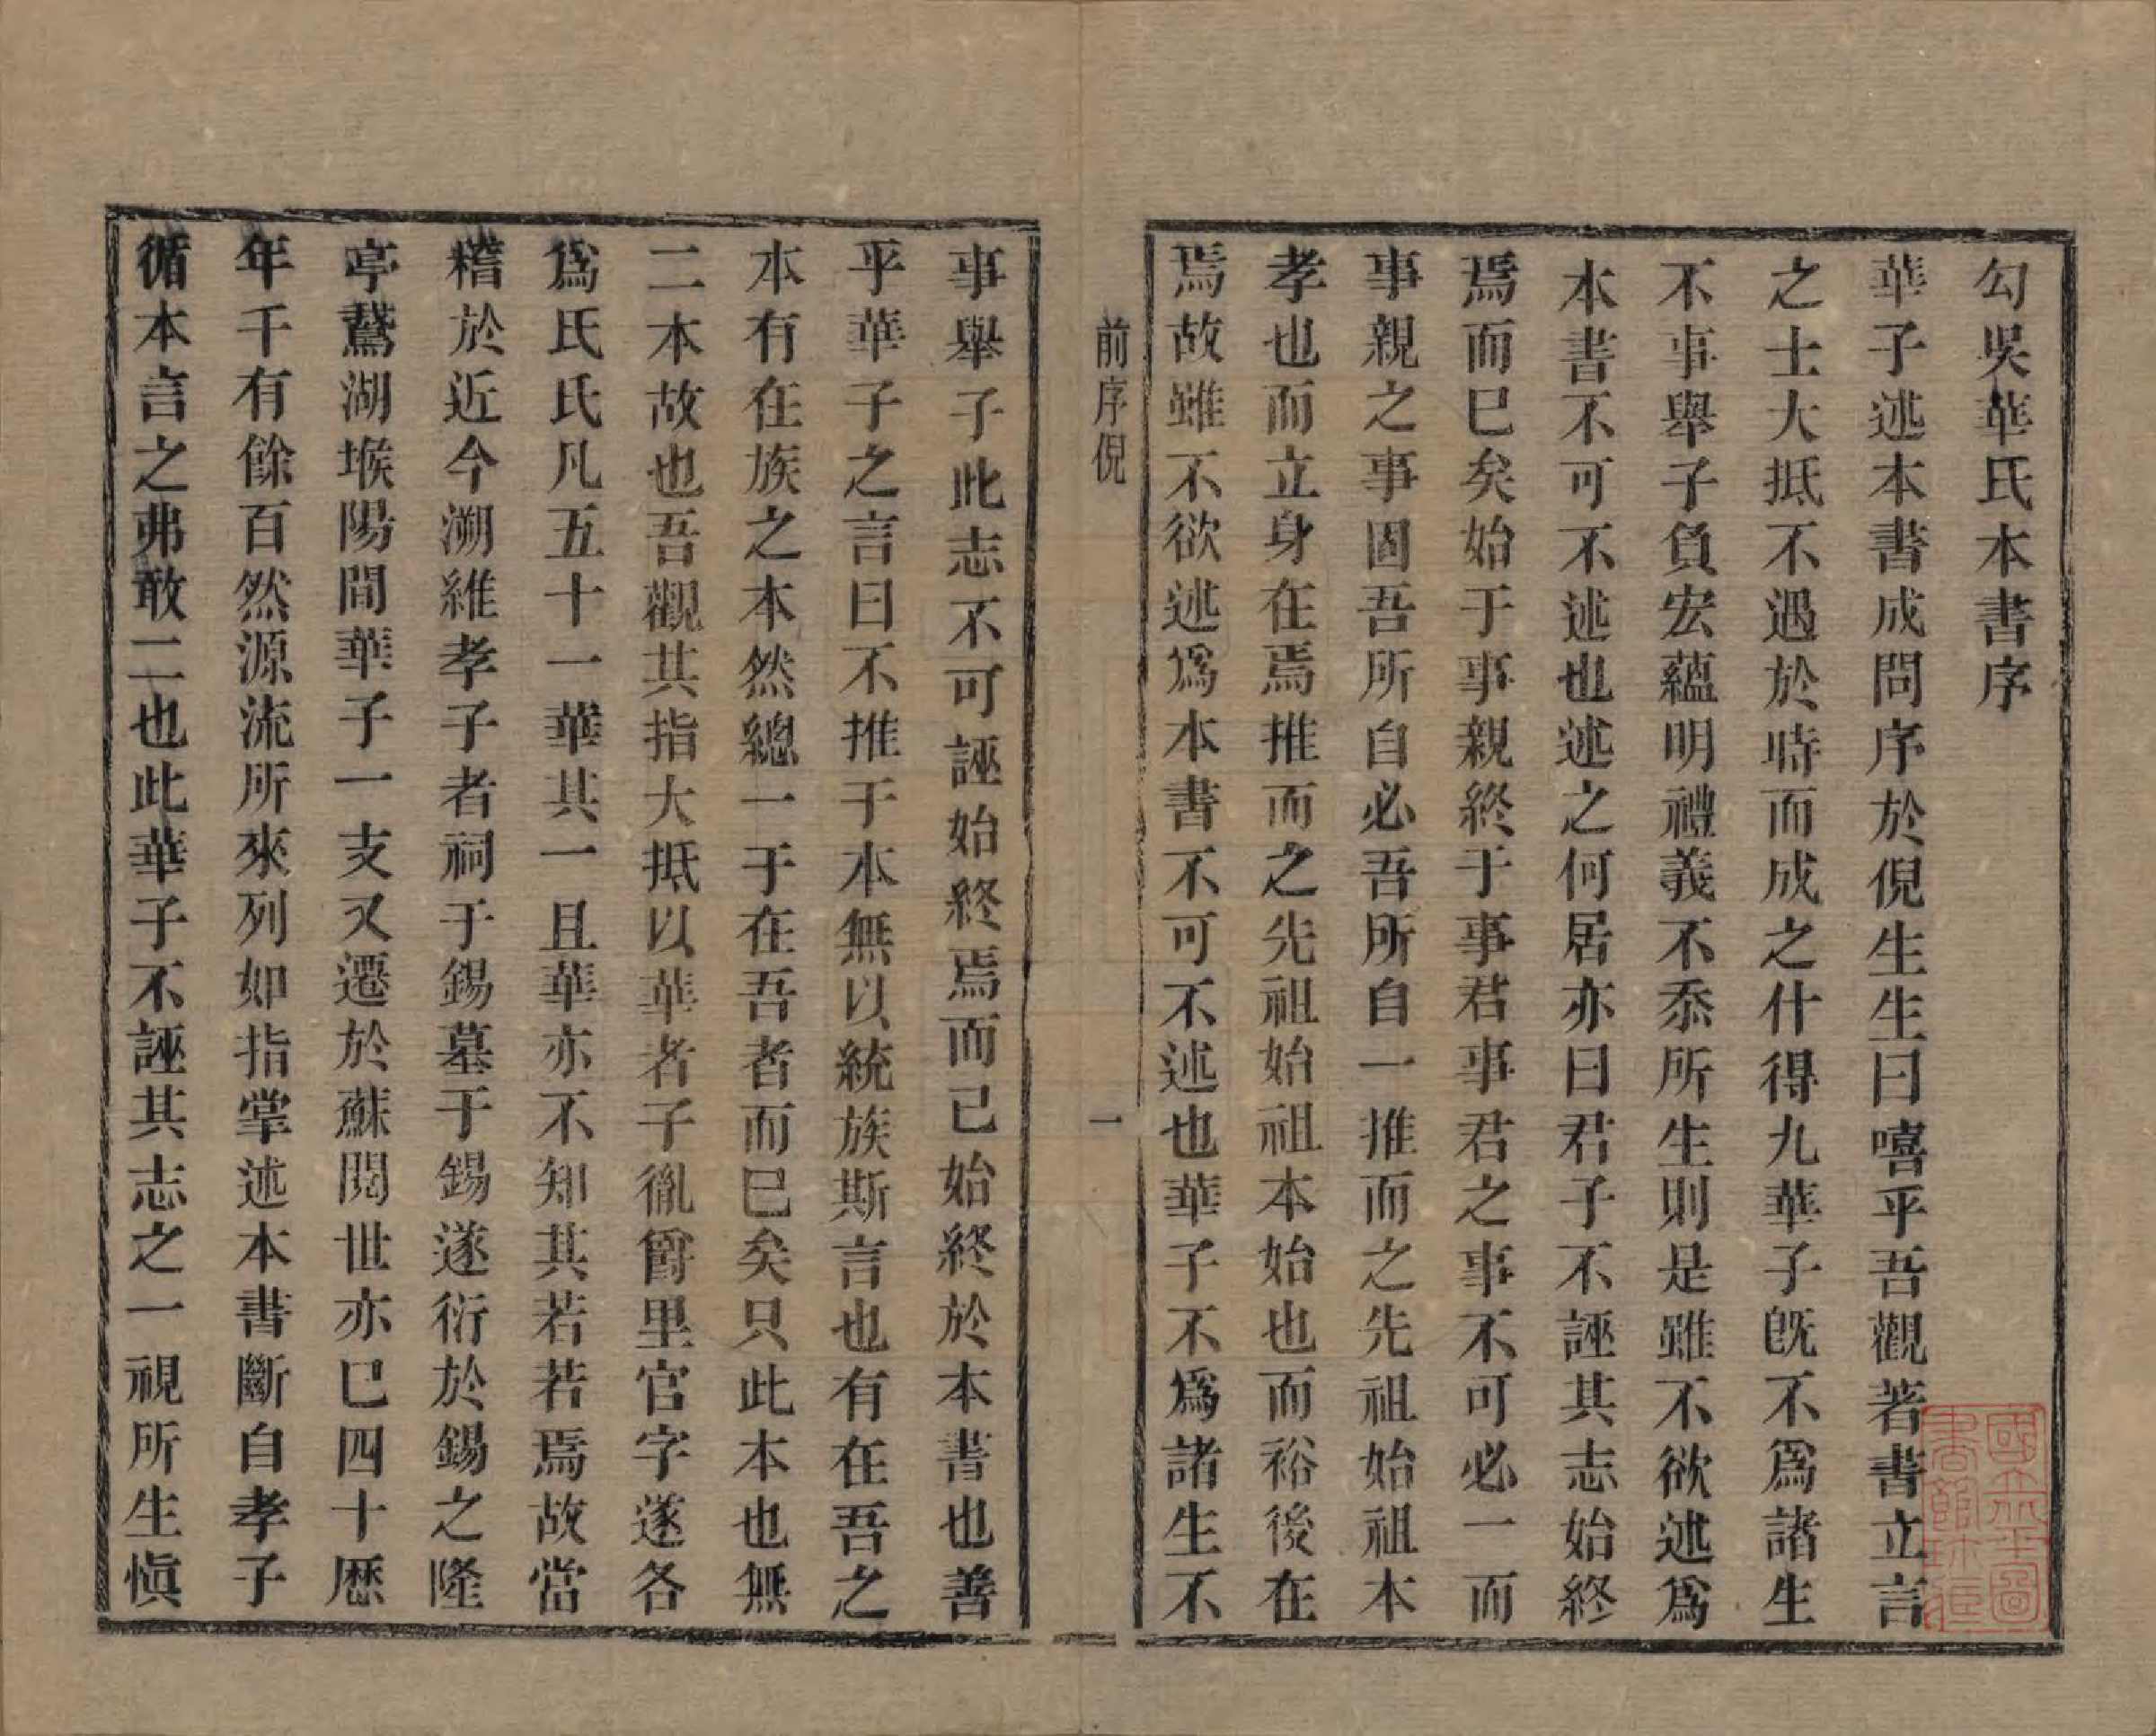 勾吳華氏本書序
華子述本書成問序於倪生生曰嘻乎吾觀著書立言
之士大抵不遇於時而成之什得九華子旣不爲諸生
不事舉子負宏蘊明禮義不忝所生則是雖不欲述爲
本書不可不述也述之何居亦曰君子不誣其志始終
焉而已矣始于事親終于事君事君之事不可必一而
事親之事固吾所自必吾所自一推而之先祖始祖本
孝也而立身在焉推而之先祖始祖本始也而裕後在
焉故雖不欲述爲本書不可不述也華子不爲諸生不
前序倪
一
事舉子此志不可誣始終焉而已始終於本書也善
乎華子之言曰不推于本無以統族斯言也有在吾之
本有在族之本然總一于在吾者而已矣只此本也無
二本故也吾觀其指大抵以華者子胤爵里官字遂各
爲氏氏凡五十一華其一且華亦不知其若若焉故當
稽於近今溯維孝子者祠于錫墓于錫遂衍於錫之隆
亭鵞湖堠陽間華子一支又遷於蘇閱世亦已四十歷
年千有餘百然源流所來列如指掌述本書斷自孝子
循本言之弗敢二也此華子不誣其志之一視所生愼
國立北平圖書館珍藏